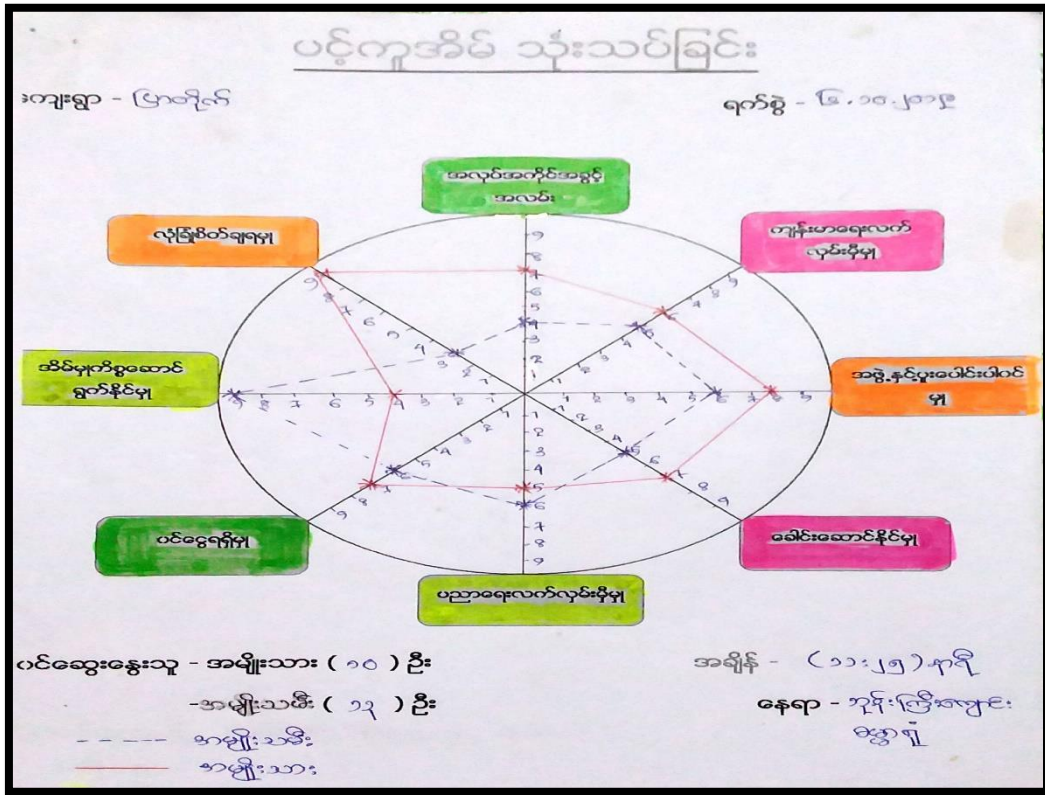 ပင့်ကူအိမ် သုံးသပ်ခြင်း
ကျေးရွာ - ပြာတိုက်
ရက်စွဲ - ၆.၁၀.၂၀၁၉
အလုပ်အကိုင်အခွင့်
အလမ်း
ကျန်းမာရေးလက်
လှမ်းမှီမှု
အဖွဲ့နှင့်ပူးပေါင်းပါဝင်
မှု
ခေါင်းဆောင်နိုင်မှု
ပညာရေးလက်လှမ်းမှီမှု
ဝင်ငွေရရှိမှု
အိမ်မှုကိစ္စဆောင်
ရွက်နိုင်မှု
လုံခြုံစိတ်ချရမှု
9
8
7
6
5
4
3
2
1
1
2
3
4
5
6
7
8
9
ဝင်ဆွေးနွေးသူ - အမျိုးသား ( ၁၀ ) ဦး
-အမျိုးသမီး ( ၁၃ ) ဦး
အမျိုးသမီး
အမျိုးသား
အချိန် - (၁၁:၂၅) နာရီ
နေရာ - ဘုန်းကြီးကျောင်း
ဓမ္မာရုံ